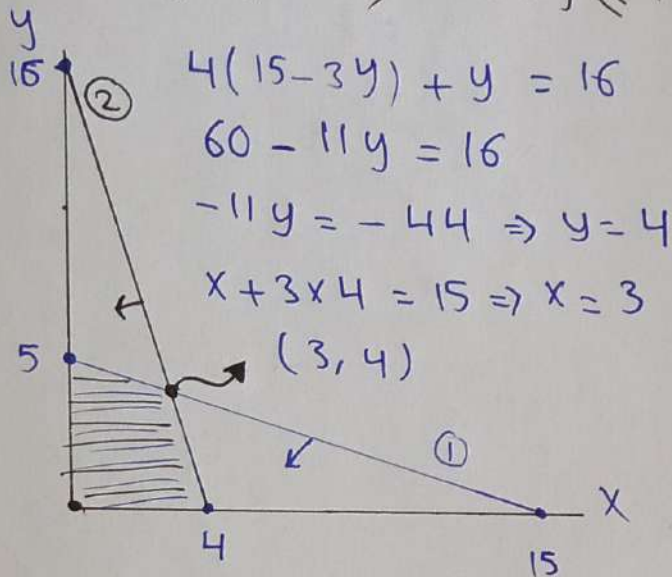 y
16
②
4(15-3y) + y = 16
60 - 11y = 16
-11y = -44 ⇒ y = 4
x + 3x4 = 15 ⇒ x = 3
5
(3, 4)
①
X
4
15